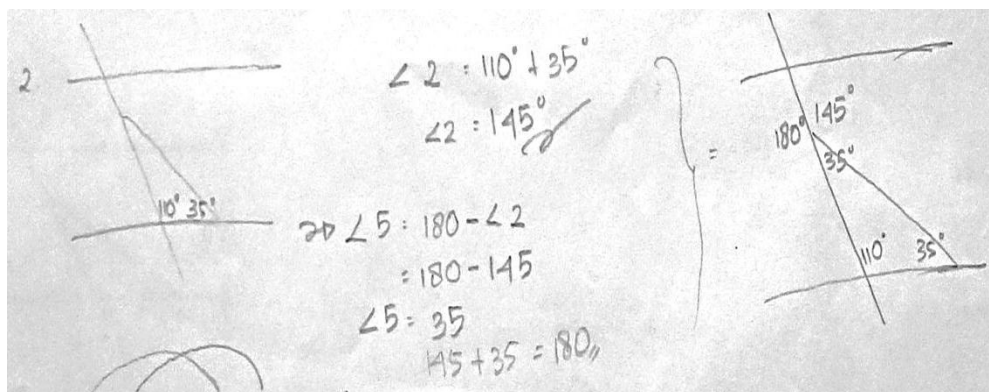 2
110° 35°
∠2 : 110° + 35°
∠2 : 145°
∠5 : 180 - ∠2
: 180 - 145
∠5 : 35
145 + 35 = 180,,
=
180° 145°
35°
110° 35°